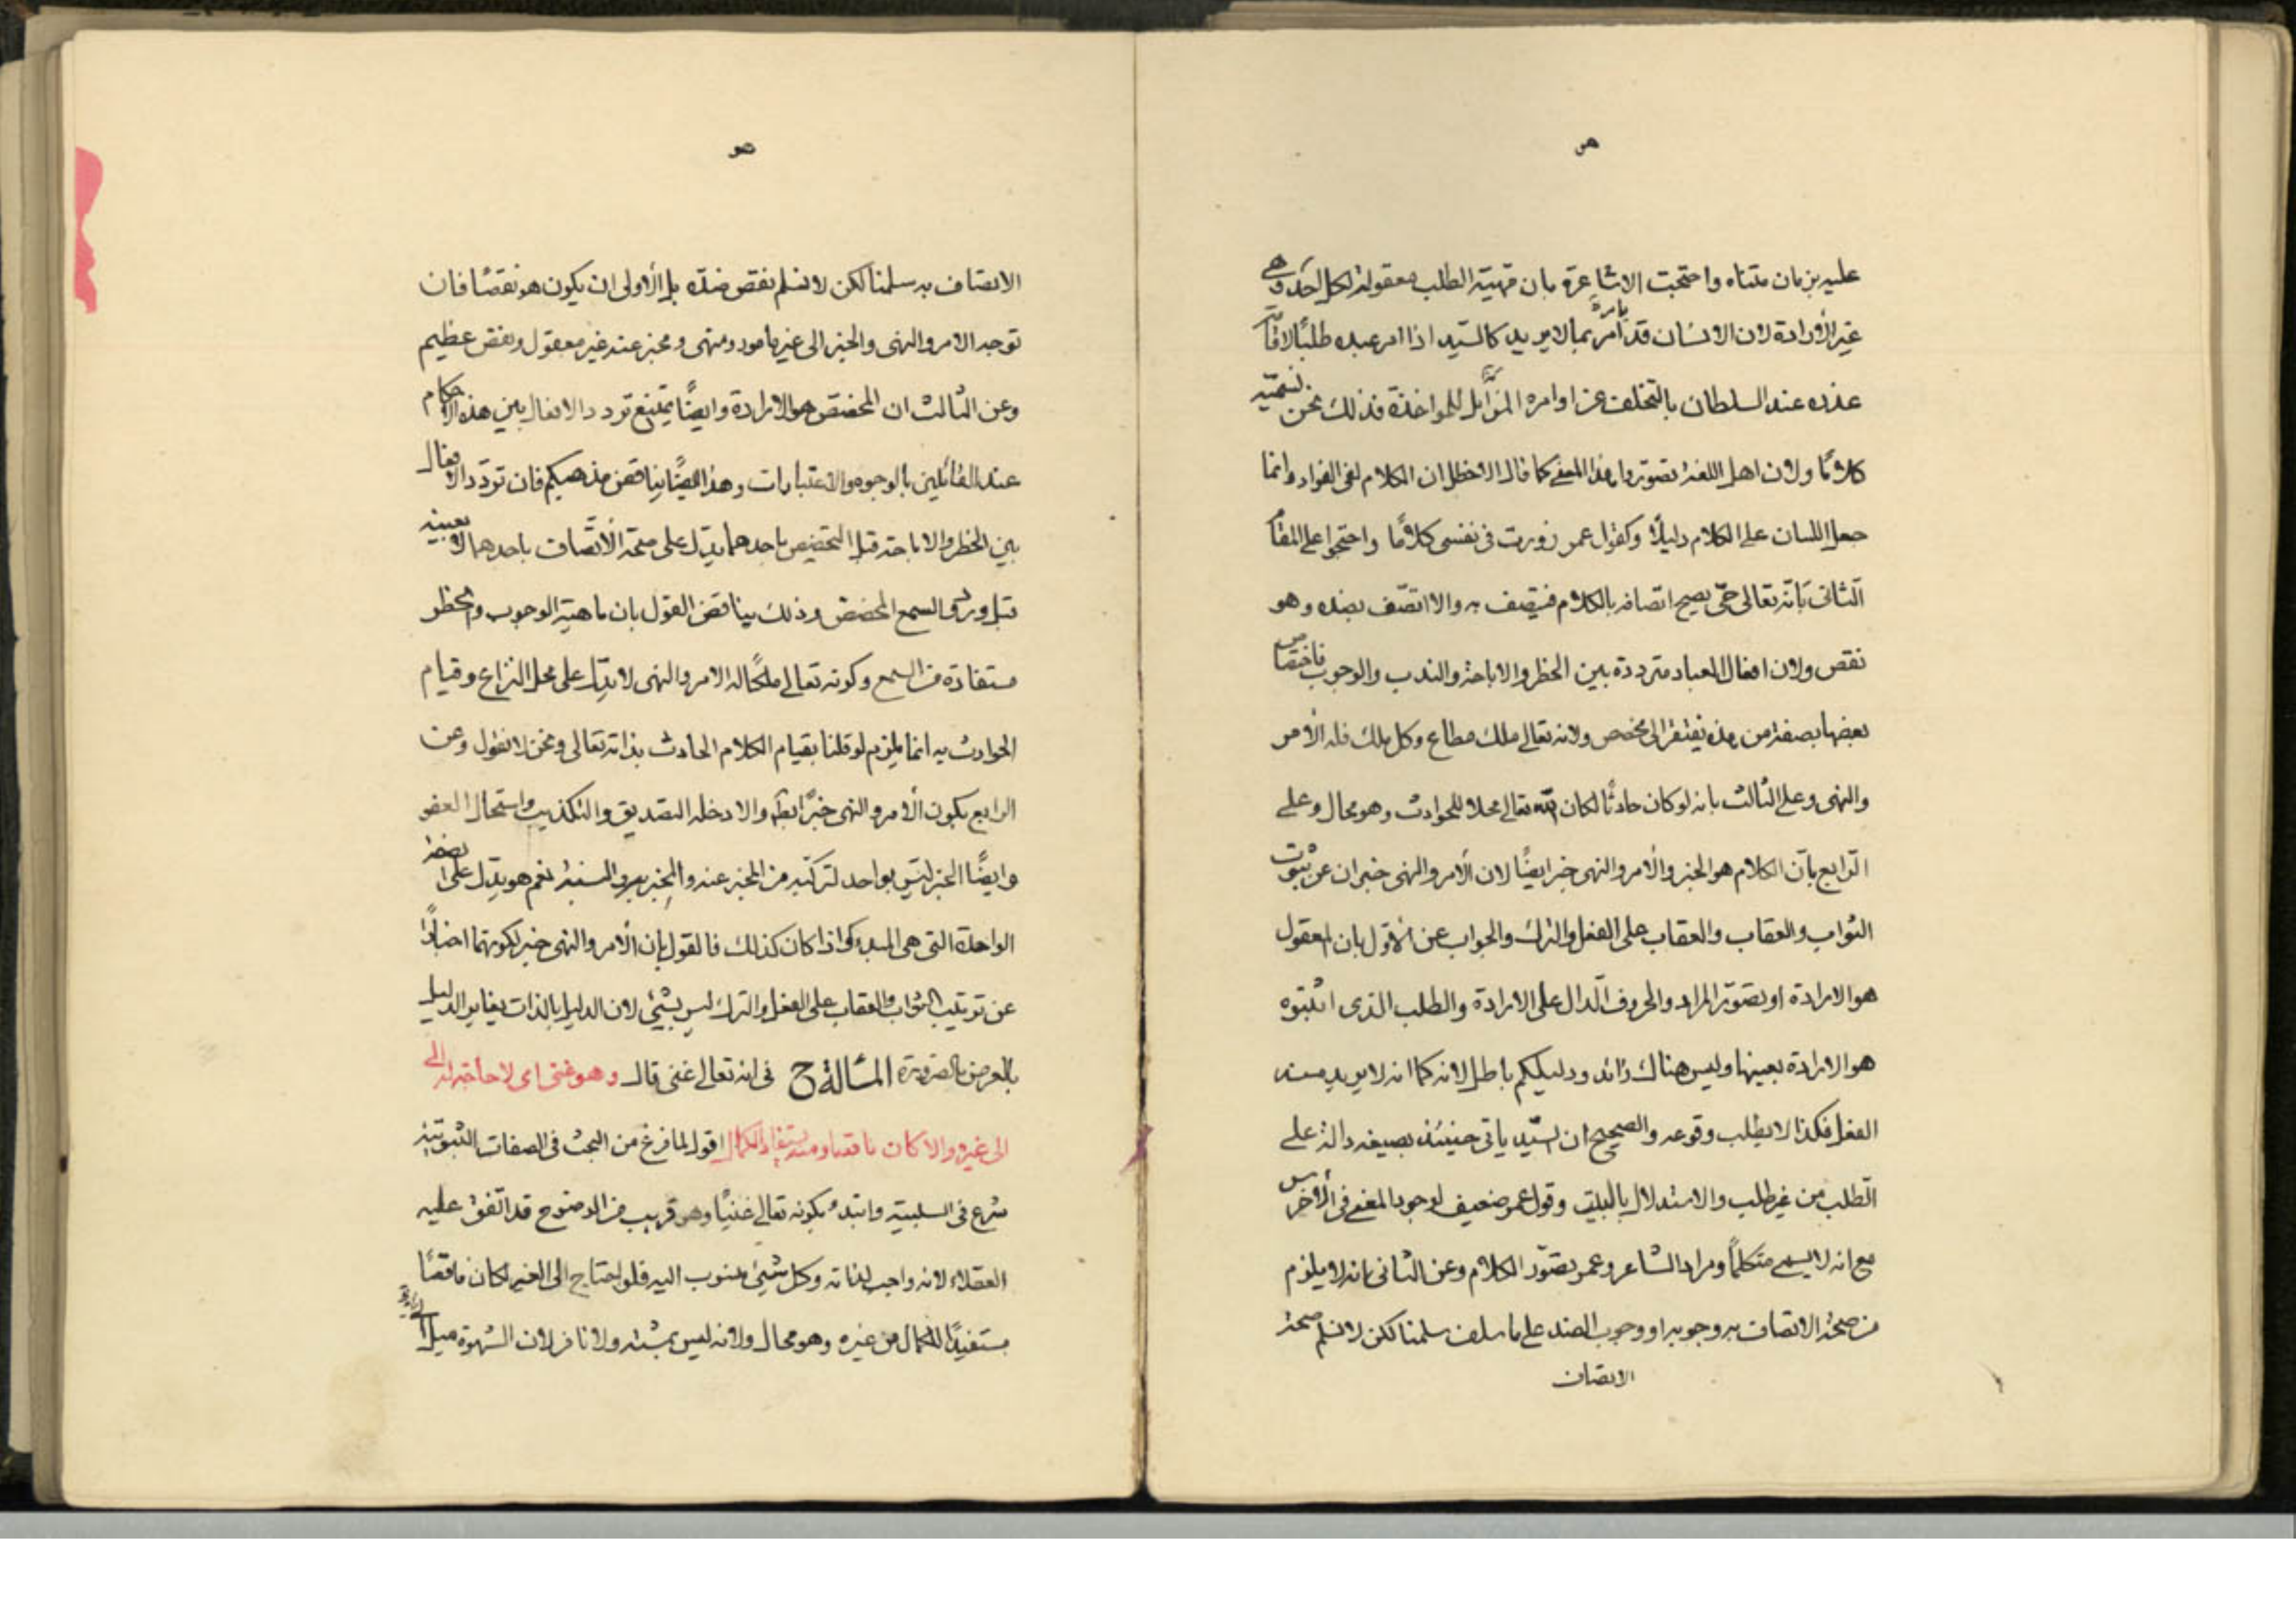 هو
عليه بزمان متناه واحتجت الاشاعرة بان مهية الطلب معقولة لكل احد وهى
غير الأرادة لان الانسان قد يأمر بما لا يريد كالسيد اذا امر عبده طلبًا لاقامة
عذره عند السلطان بالتخلف عن اوامره المزايل للمواخذة فذلك نحن نسميه
كلامًا ولان اهل اللغة تصوروا هذا المعنى كما قال الاخطل ان الكلام لفى الفواد وانما
جعل اللسان على الكلام دليلًا وكقول عمر زورت فى نفسى كلامًا واحتجوا على المقام
الثانى بأنه تعالى حىّ يصح اتصافه بالكلام فيتصف به والا اتصف بضده وهو
نقص ولان افعال العباد مترددة بين الحظر والاباحة والندب والوجوب فاختصاص
بعضها بصفة من هذه يفتقر الى مخصص ولانه تعالى ملك مطاع وكل ملك فله الأمر
والنهى وعلى الثالث بانه لو كان حادثًا لكان الله تعالى محلا للحوادث وهو محال وعلى
الرابع بأن الكلام هو الخبر والأمر والنهى خبر ايضًا لان الأمر والنهى خبران عن ثبوت
الثواب والعقاب والعقاب على الفعل والترك والجواب عن الأول بان المعقول
هو الارادة او تصوّر المراد والحروف الدال على الارادة والطلب الذى اثبتوه
هو الارادة بعينها وليس هناك زائد ودليلكم باطل لانه كما انه لا يريد منه
الفعل فكذا لا يطلب وقوعه والصحيح ان السيّد ياتى حينئذ بصيغة دالة على
الطلب من غير طلب والاستدلال بالبيت وقول عمر ضعيف لوجود المعنى فى الأخرس
مع انه لا يسمى متكلمًا ومراد الشاعر وعمر تصوّر الكلام وعن الثانى بانه لا يلزم
من صحة الاتصاف به وجوبه او وجوب الضد على ما سلف سلمنا لكن لا نسلم صحة
الاتصاف
هو
الاتصاف به سلمنا لكن لا نسلم نقص ضده بل الأولى ان يكون هو نقصًا فان
توجه الامر والنهى والخبر الى غير مامور ومنهى ومخبر عنه غير معقول ونقص عظيم
وعن الثالث ان المخصص هو الارادة وايضًا يمتنع تردد الافعال بين هذه الاحكام
عند القائلين بالوجوه والاعتبارات وهذا ايضًا يناقض مذهبكم فان تردّد الافعال
بين الحظر والاباحة قبل التخصيص باحدهما يدّل على صحة الأتصاف باحدهما لا بعينه
قبل ورود السمع المخصص وذلك يناقض القول بان ماهية الوجوب والحظر
مستفادة من السمع وكونه تعالى ملكًا له الامر والنهى لا يدّل على محل النزاع وقيام
الحوادث به انما يلزم لو قلنا بقيام الكلام الحادث بذاته تعالى ونحن لا نقول وعن
الرابع بكون الأمر والنهى خبرًا والا دخله التصديق والتكذيب واستحال العفو
وايضًا الخبر ليس بواحد لتركبه من المخبر عنه والمخبر به والنسبة نعم هو يدّل على الصفة
الواحدة التى هى المبدء واذا كان كذلك فالقول بان الأمر والنهى خبر لكونهما اخبارًا
عن ترتيب الثواب والعقاب على الفعل والترك ليس بشيء لان الدليل بالذات يغاير الدليل
بالعرض بالضرورة المسألة ح فى انه تعالى غنى قال وهو غنى اى لا حاجة له
الى غيره والا كان ناقصا ومنه يستفاد الكمال اقول لما فرغ من البحث فى الصفات الثبوتية
شرع فى السلبية وابتدء بكونه تعالى غنيًا وهو قريب من الوضوح قد اتفق عليه
العقلاء لانه واجب لذاته وكل شيئ منسوب اليه فلو احتاج الى الغير لكان ناقصًا
مستفيدًا للكمال من غيره وهو محال ولانه ليس بمشته ولا نافر لان الشهوة ميل